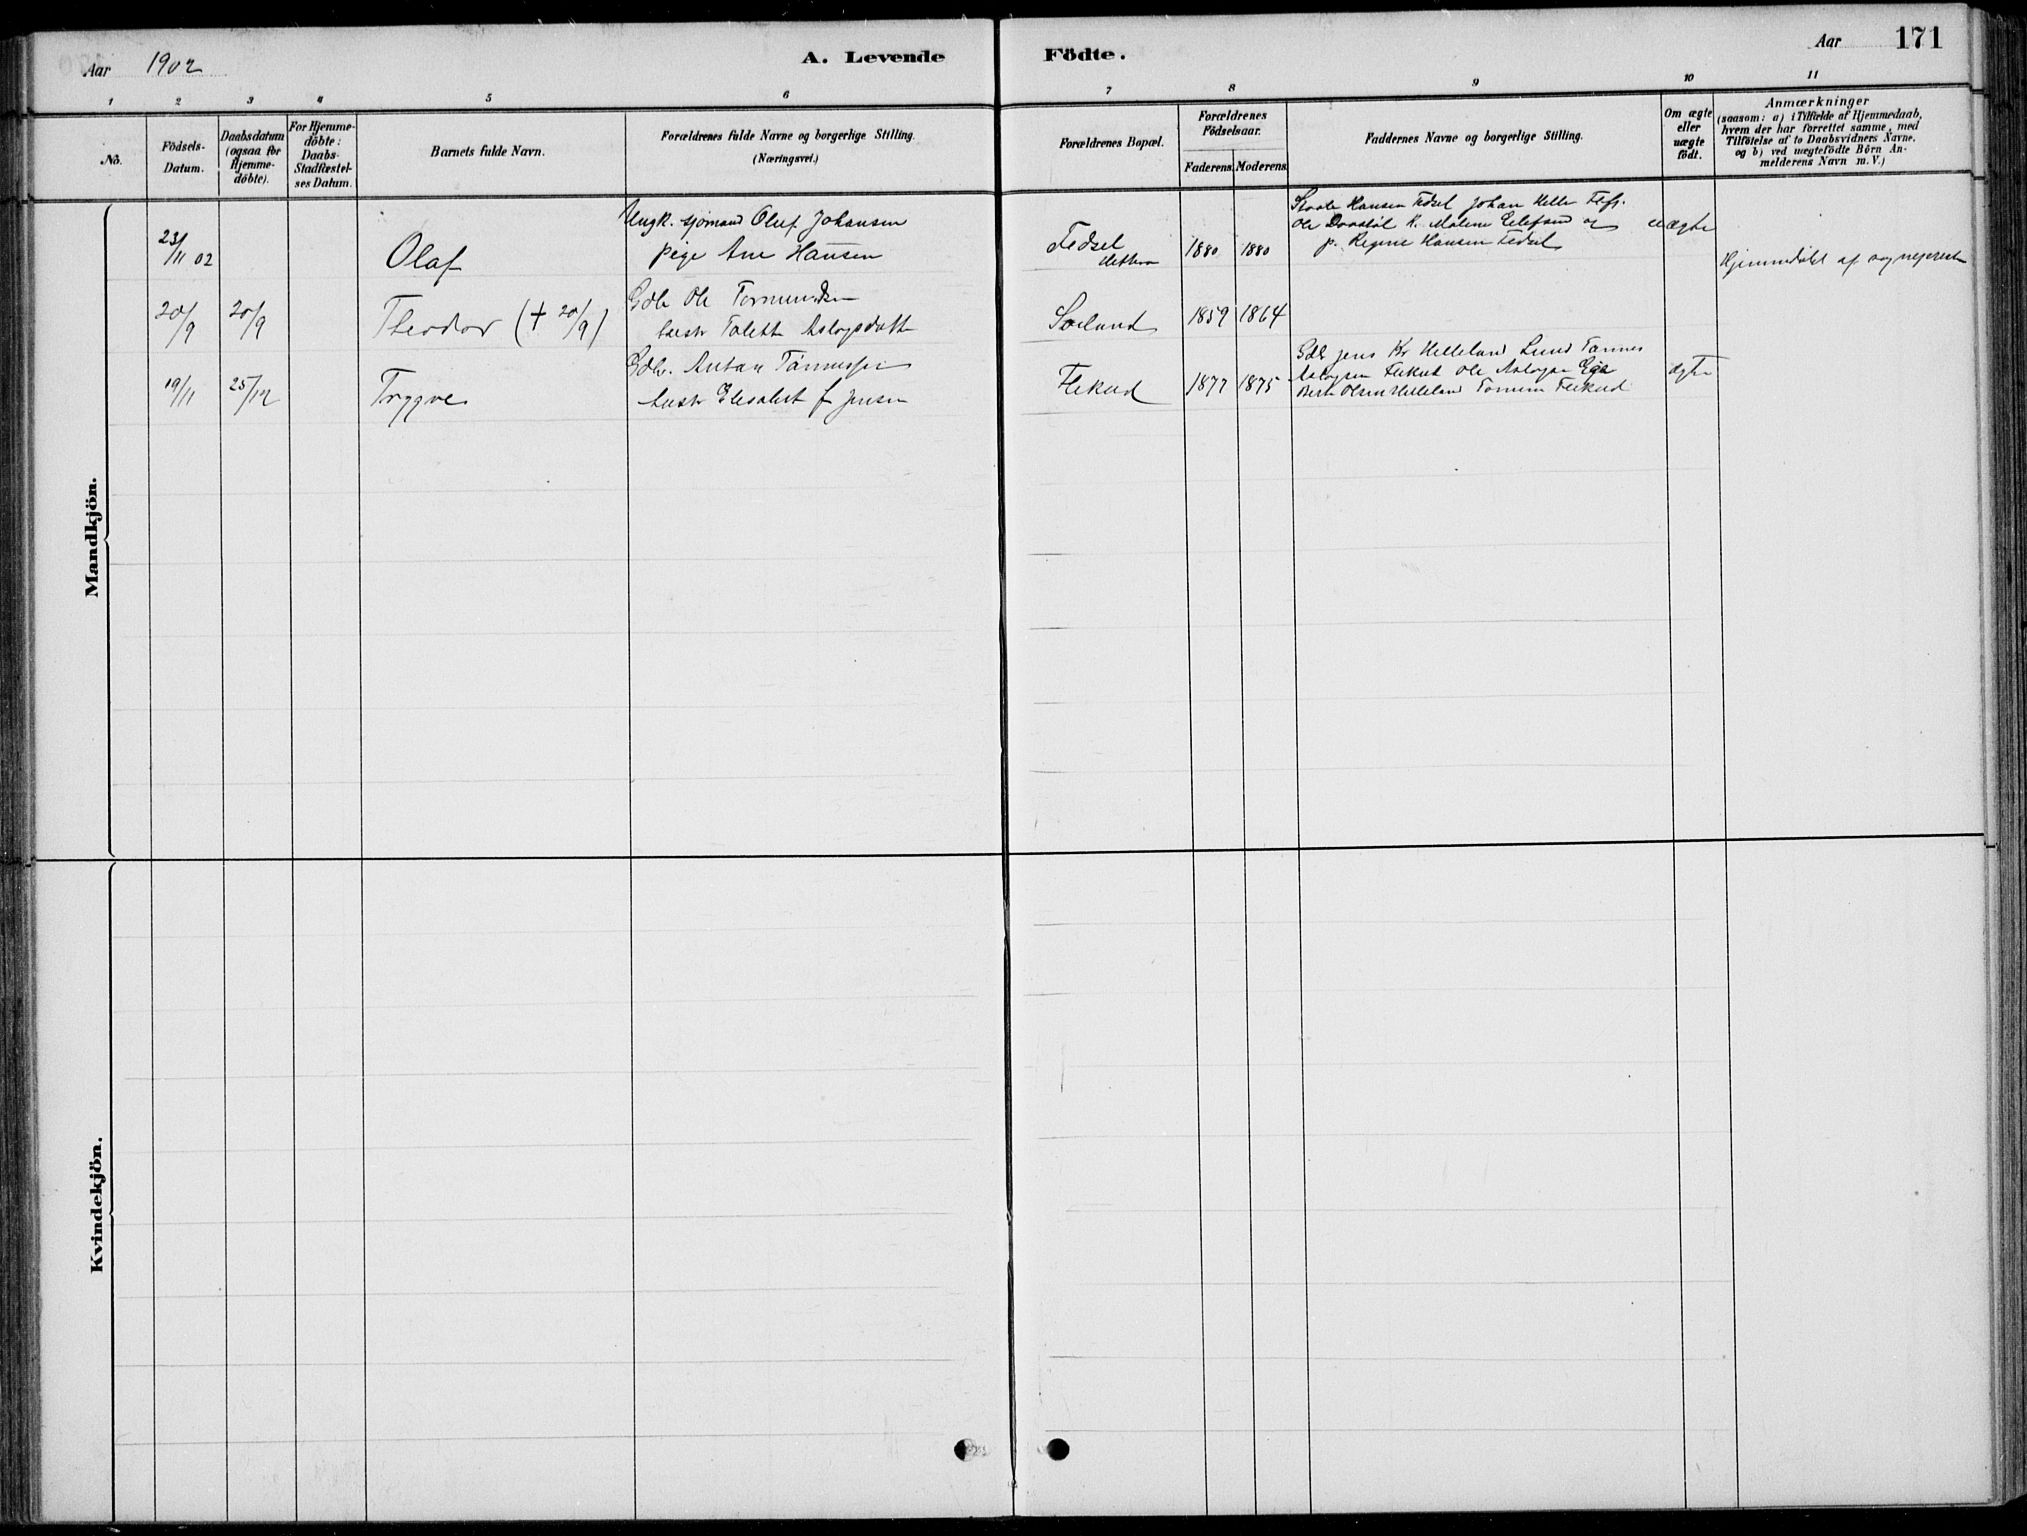 Aar 1902
A. Levende
Födte.
Aar 171
1 2 3 4 5 6 7 8 9 10 11
No.
Födsels-
Datum.
Daabsdatum
(ogsaa for
Hjemme-
döbte).
For Hjemme-
döbte:
Daabs-
Stadfæstel-
ses Datum.
Barnets fulde Navn.
Forældrenes fulde Navne og borgerlige Stilling.
(Næringsvei.)
Forældrenes Bopæl.
Forældrenes
Födselsaar.
Faderens. Moderens.
Faddernes Navne og borgerlige Stilling.
Om ægte
eller
uægte
födt.
Anmærkninger
(saasom: a) i Tilfælde af Hjemmedaab,
hvem der har forrettet samme, med
Tilföielse af to Daabsvidners Navne.
og b) ved uægtefödte Börn An-
melderens Navn m. V.)
Mandkjön.
23/11 02
Olaf
Ungk. sjömand Oluf Johansen
pige Ane Hansen
Fedsel
1880 1880
Hansen Fedsel Johan Helle
Ole K. Malene og
p. Regine Hansen Fedsel
uægte
20/9 20/9
Theodor (+ 20/9)
Gdb Ole
hustr Aslagsdatt
1859 1864
Hjemmedöbt af sogneprest
19/11 25/12
Trygve
Gdb. Anton
hustr Elisabet f Jensen
Flikud
1877 1875
Gdb Jens Kr Helleland Lund
Aslagsen Flikud Ole Aslagsen Ege
Olsen Helleland Flikud
ægte
Kvindekjön.